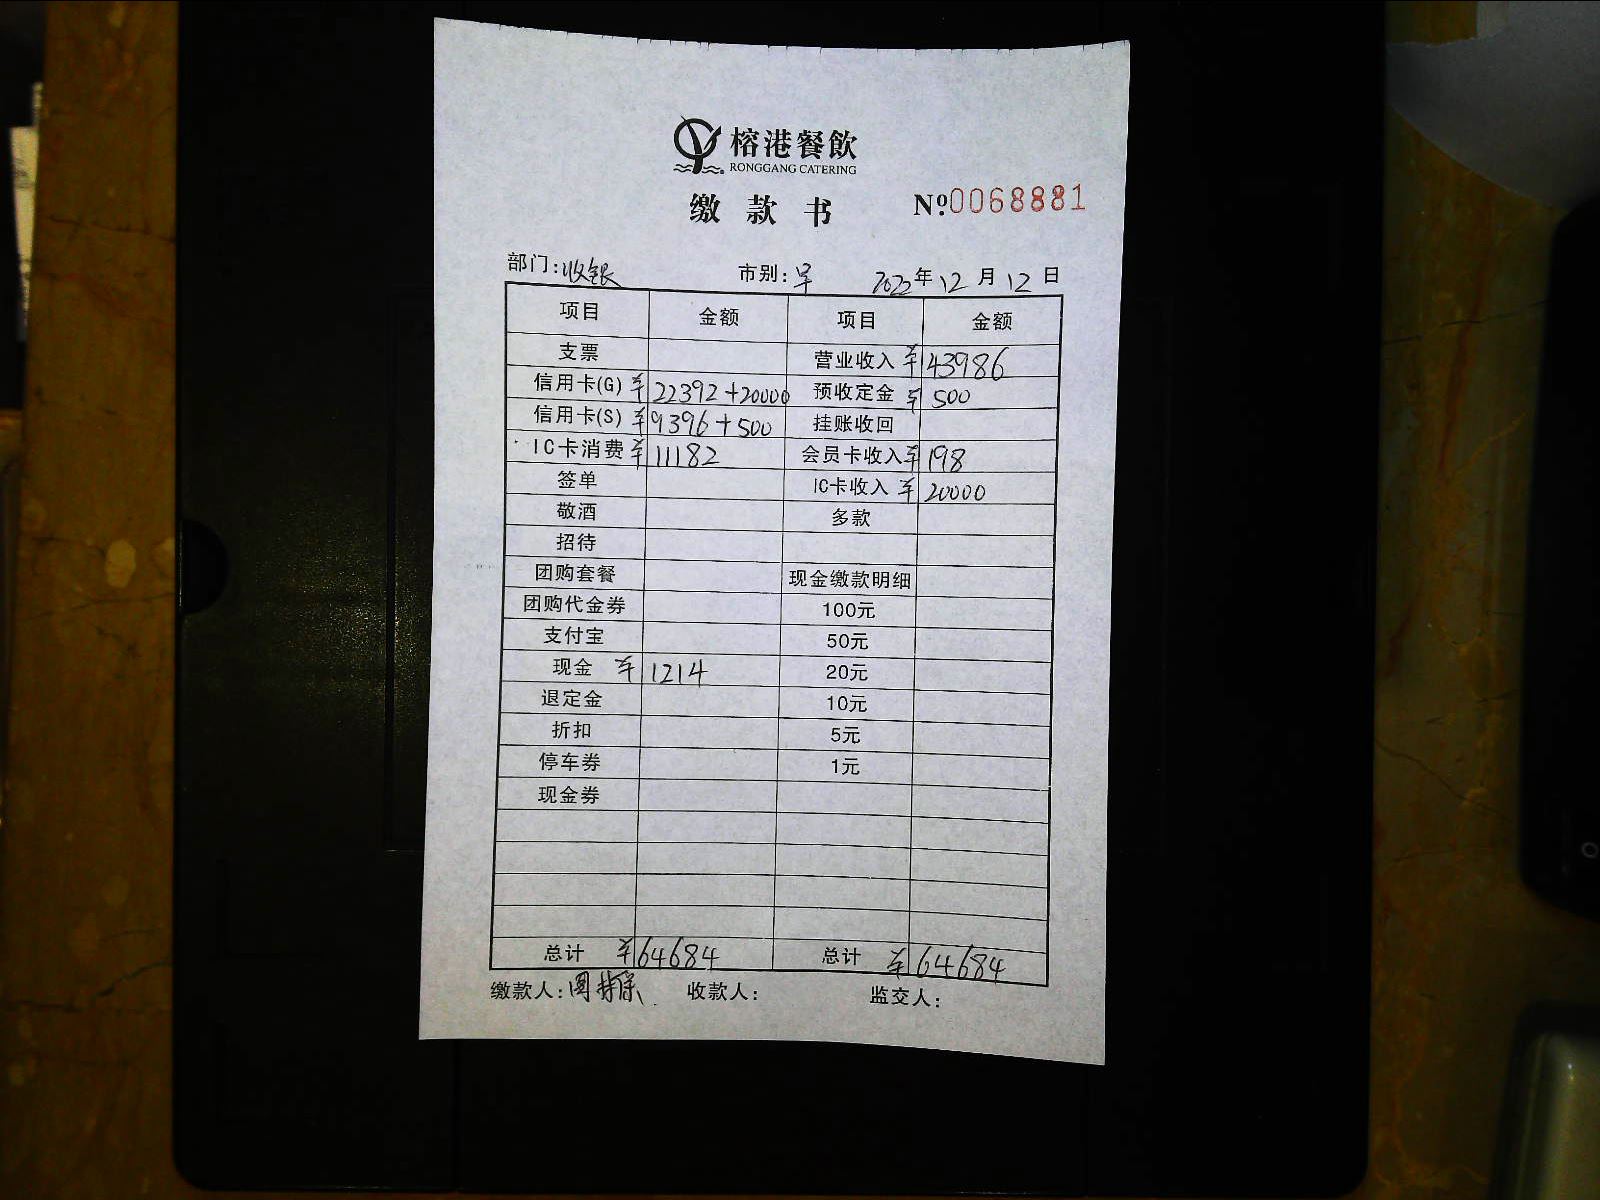 榕港餐飲
RONGGANG CATERING
缴款书 №0068881
部门:收银 市别:早 2022年12月12日
项目 金额 项目 金额
支票 营业收入 ¥43986
信用卡(G) ¥22392+20000 预收定金 ¥500
信用卡(S) ¥9396+500 挂账收回
IC卡消费 ¥11182 会员卡收入 ¥198
签单 IC卡收入 ¥20000
敬酒 多款
招待
团购套餐 现金缴款明细
团购代金券 100元
支付宝 50元
现金 ¥1214 20元
退定金 10元
折扣 5元
停车券 1元
现金券
总计 ¥64684 总计 ¥64684
缴款人: 收款人: 监交人: